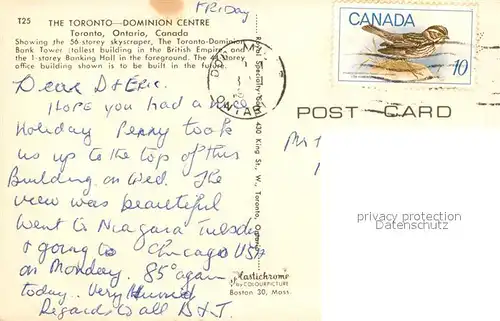 FRIDAY
T25 THE TORONTO—DOMINION CENTRE
Toronto, Ontario, Canada
Showing the 56 storey skyscraper, The Toronto-Dominion
Bank Tower (tallest building in the British Empire) and
the 1-storey Banking Hall in the foreground. The 4 storey
office building shown is to be built in the future.
Dear D & Eric.
HOPE you had a nice
Holiday Penny took
us up to the top of this
Building on Wed. The
view was beautiful
Went to Niagara Tuesday
& going to Chicago USA
on Monday. 85° again
today. Very Humid
Regards to all B & J.
Royal Specialty Sales, 430 King St., W., Toronto, Ontario
Plastichrome
by COLOURPICTURE
Boston 30, Mass.
CANADA
10
ONTARIO
POST CARD
privacy protection
Datenschutz